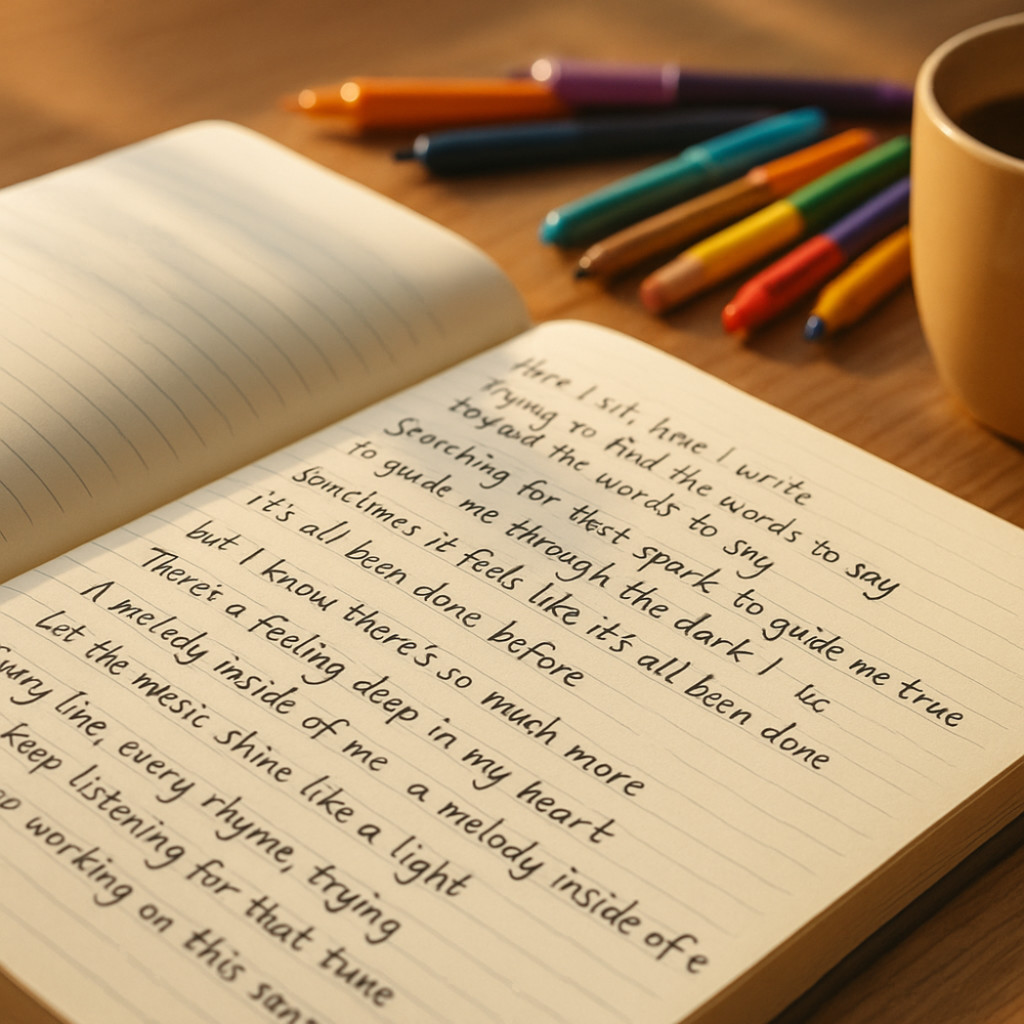 Here I sit, hrue I write
Trying to find the words to say
the words to sny
Searching for thest spark to guide me true
to guide me through the dark I
Somclimes it feels like it's all been done
it's all been done before
but I know there's so much more
There's a feeling deep in my heart
A meledy inside of me a melody inside of e
Let the mesic shine like a light
line, every rhyme, trying
keep listening for that tune
working on this